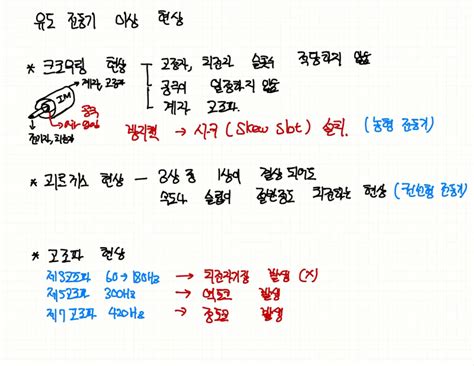 유도 전동기 이상 현상
* 크로우링 현상 고정자, 회전자 슬롯수 적당하지 않음
공극이 일정하지 않음
계자 고조파.
계자, 고정자
IM
공극
air gap
전기자, 회전자
방지책 → 사구 (Skew slot) 설치. (농형 전동기)
* 괴르게스 현상 - 3상 중 1상이 결상 되어도
속도나 슬립이 절반정도 회전하는 현상 (권선형 전동기)
* 고조파 현상
제3고조파 60 → 180Hz → 회전자기장 발생 (X)
제5고조파 300Hz → 역토크 발생
제7고조파 420Hz → 발생